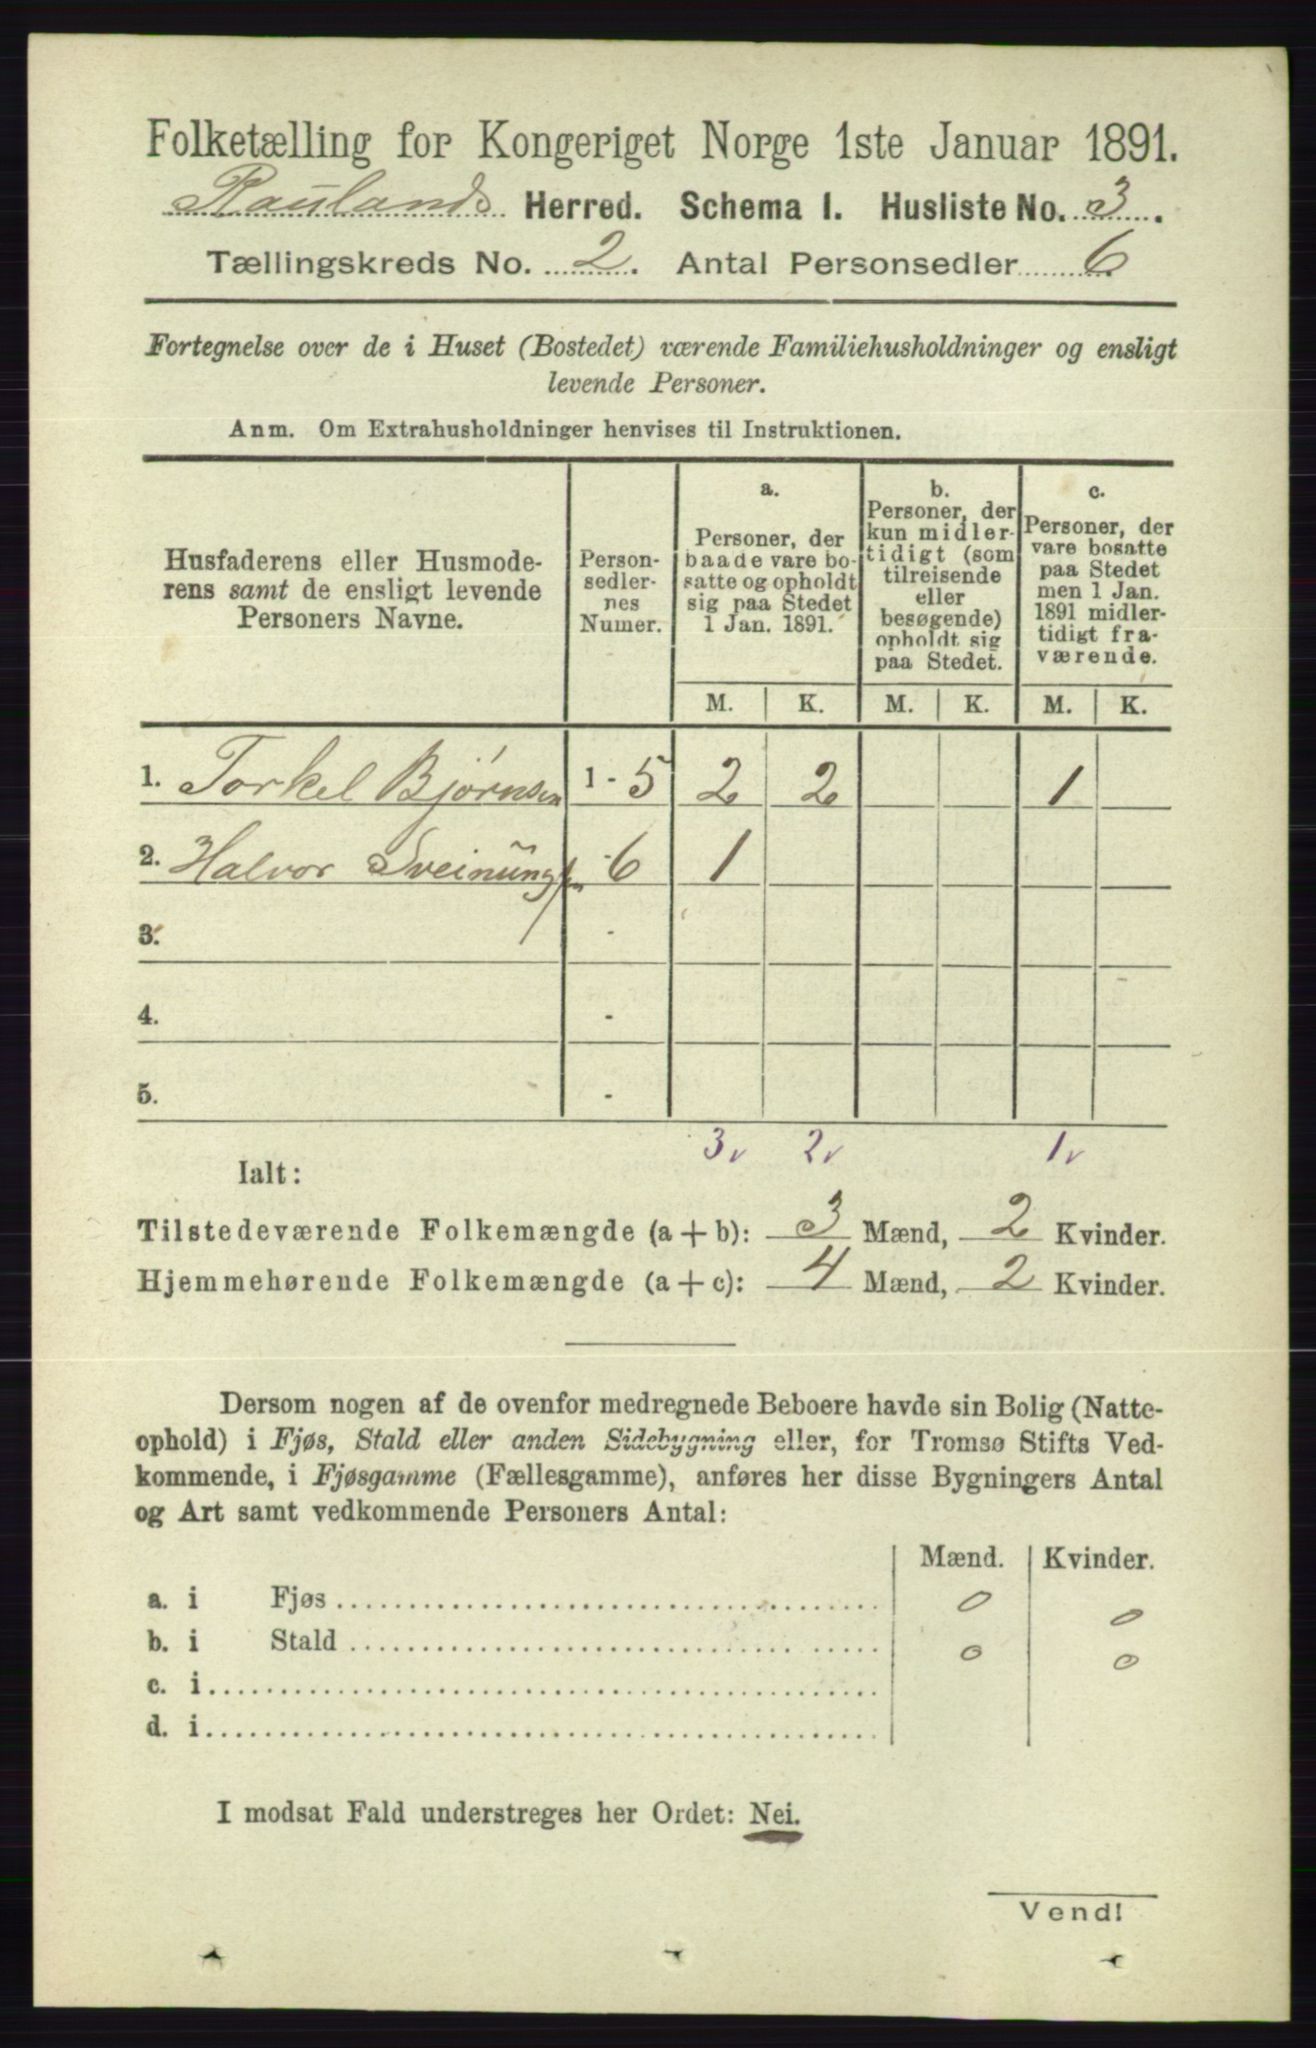 Folketælling for Kongeriget Norge 1ste Januar 1891.
Raulands Herred. Schema I. Husliste No. 3.
Tællingskreds No. 2. Antal Personsedler 6
Fortegnelse over de i Huset (Bostedet) værende Familiehusholdninger og ensligt
levende Personer.
Anm. Om Extrahusholdninger henvises til Instruktionen.
Husfaderens eller Husmode-
rens samt de ensligt levende
Personers Navne.
Person-
sedler-
nes
Numer.
a.
Personer, der
baade vare bo-
satte og opholdt
sig paa Stedet
1 Jan. 1891.
b.
Personer, der
kun midler-
tidigt (som
tilreisende
eller
besøgende)
opholdt sig
paa Stedet.
c.
Personer, der
vare bosatte
paa Stedet
men 1 Jan.
1891 midler-
tidigt fra-
værende.
M. K. M. K. M. K.
1. Torkel Bjørnsen 1 - 5 2 2 1
2. Halvor Sveinungsen - 6 1
3. -
4. -
5. -
3v 2v 1v
Ialt:
Tilstedeværende Folkemængde (a + b): 3 Mænd, 2 Kvinder.
Hjemmehørende Folkemængde (a + c): 4 Mænd, 2 Kvinder.
Dersom nogen af de ovenfor medregnede Beboere havde sin Bolig (Natte-
ophold) i Fjøs, Stald eller anden Sidebygning eller, for Tromsø Stifts Ved-
kommende, i Fjøsgamme (Fællesgamme), anføres her disse Bygningers Antal
og Art samt vedkommende Personers Antal:
Mænd. Kvinder.
a. i Fjøs 0 0
b. i Stald 0 0
c. i
d. i
I modsat Fald understreges her Ordet: Nei.
Vend!